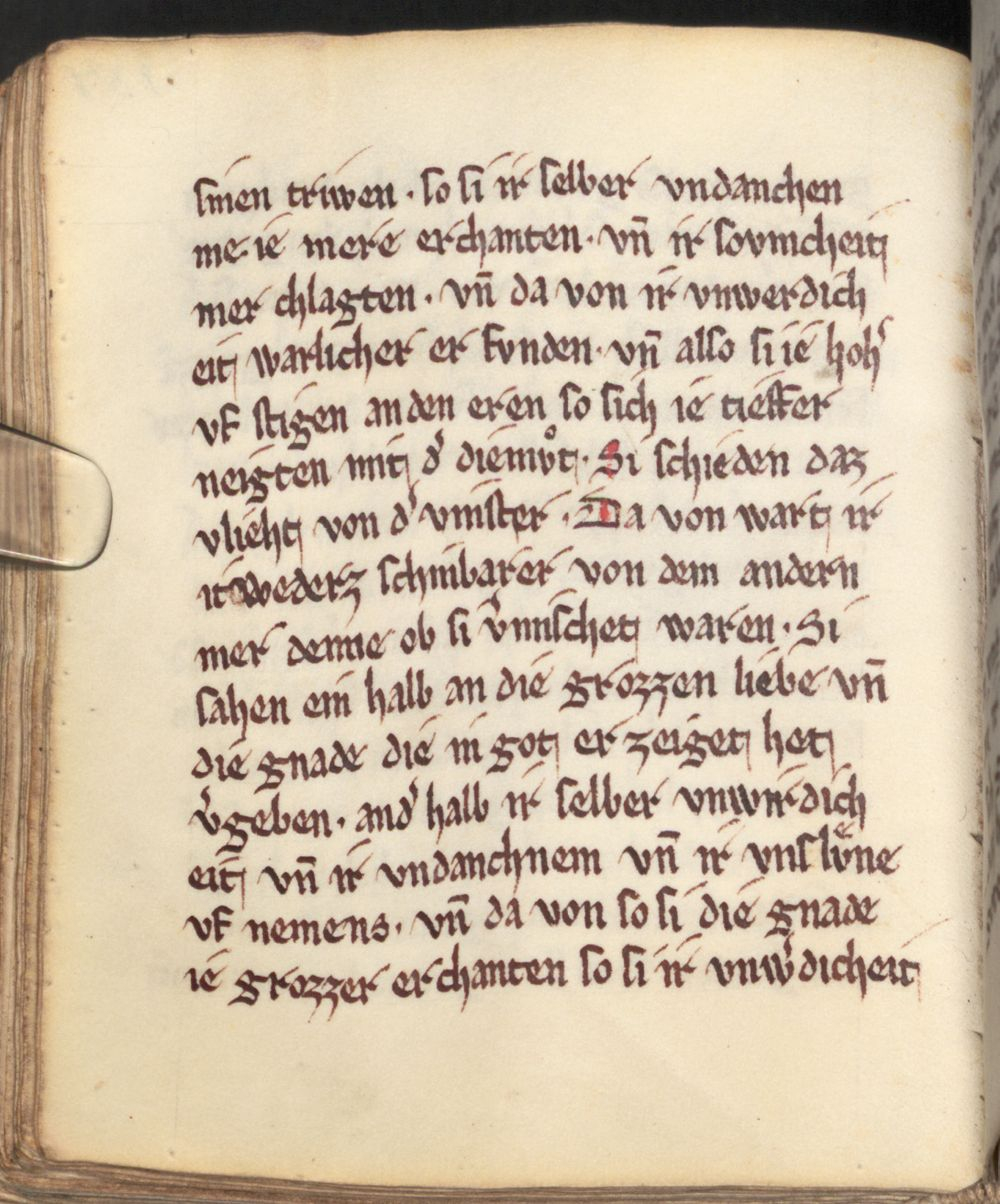 sinen triwen · so si ir selber vndanchen
me · ie mere erchanten · vn̄ ir sovmcheit
mer chlagten · vn̄ da von ir vnwerdich
eit warlicher er fvnden · vn̄ also si ie hoh͛
vf stigen an den eren so sich ie tieffer
neigten mit d͛ diemvͦt · Si schieden daz
vlieht von d͛ vinster · Da von wart ir
itwederz schinbarer von dem andern
mer denne ob si v͛mischet waren · Si
sahen ein halb an die grozzen liebe vn̄
die gnade die in got er zeiget het
v͛geben · and͛ halb ir selber vnwirdich
eit vn̄ ir vndanchnem vn̄ ir vnslvͤne
vf nemens · vn̄ da von so si die gnade
ie grozzer erchanten so si ir vnw͛dicheit